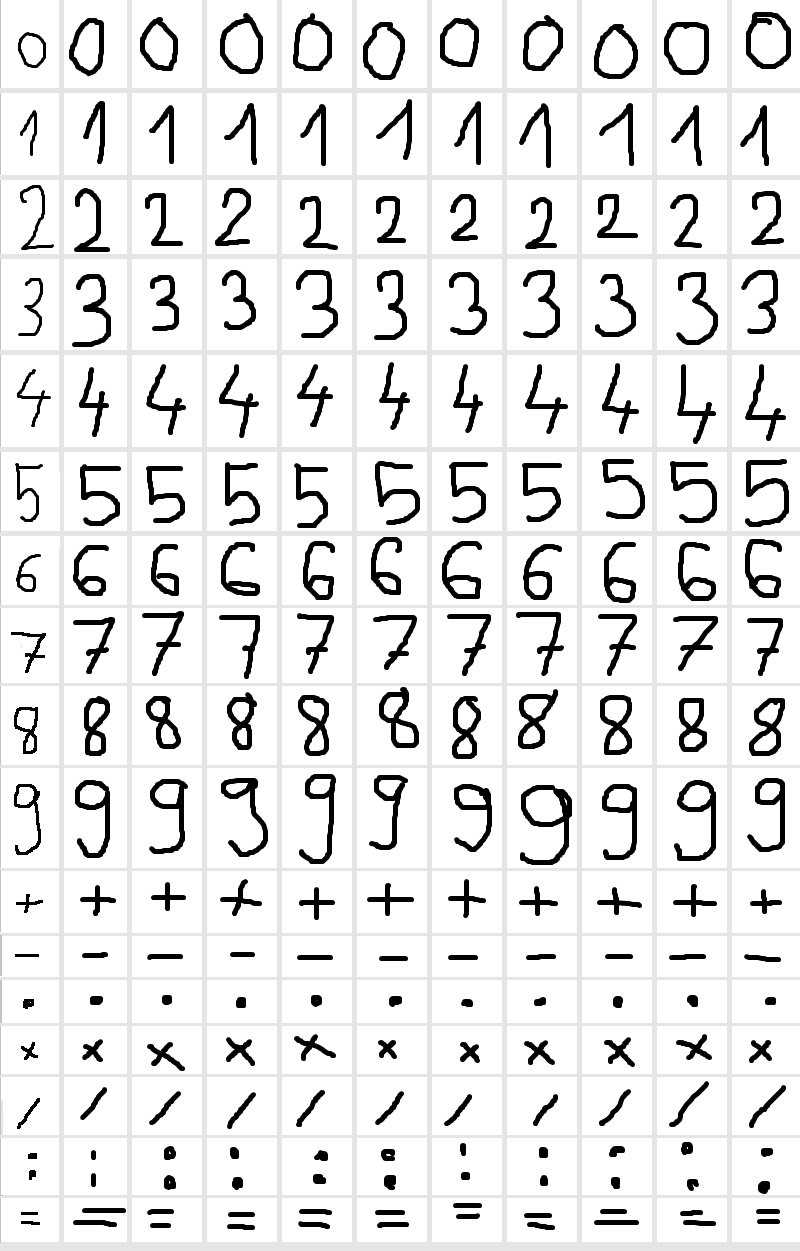 0 0 0 0 0 0 0 0 0 0 0
1 1 1 1 1 1 1 1 1 1 1
2 2 2 2 2 2 2 2 2 2 2
3 3 3 3 3 3 3 3 3 3 3
4 4 4 4 4 4 4 4 4 4 4
5 5 5 5 5 5 5 5 5 5 5
6 6 6 6 6 6 6 6 6 6 6
7 7 7 7 7 7 7 7 7 7 7
8 8 8 8 8 8 8 8 8 8 8
9 9 9 9 9 9 9 9 9 9 9
+ + + + + + + + + + +
- - - - - - - - - - -
. . . . . . . . . . .
× × × × × × × × × × ×
/ / / / / / / / / / /
: : : : : : : : : : :
= = = = = = = = = = =